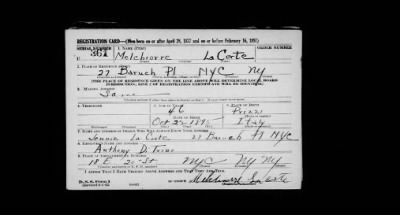 REGISTRATION CARD—(Men born on or after April 28, 1877 and on or before February 16, 1897)
SERIAL NUMBER 1. NAME (Print) ORDER NUMBER
U 361 Melchiorre La Corte
2. PLACE OF RESIDENCE (Print)
27 Baruch Pl NYC NY
[THE PLACE OF RESIDENCE GIVEN ON THE LINE ABOVE WILL DETERMINE LOCAL BOARD
JURISDICTION; LINE 2 OF REGISTRATION CERTIFICATE WILL BE IDENTICAL]
3. MAILING ADDRESS
Same
4. TELEPHONE
46
Oct 27 189 Italy
7. NAME AND ADDRESS OF PERSON WHO WILL ALWAYS KNOW YOUR ADDRESS
Jennie La Corte 27 Baruch Pl NYC
8. EMPLOYER'S NAME AND ADDRESS
Anthony D.
9. PLACE OF EMPLOYMENT OR BUSINESS
18 E. St NYC NY NY
I AFFIRM THAT I HAVE VERIFIED ABOVE ANSWERS AND THAT THEY ARE TRUE.
D. S. S. Form 1
Melchiorre La Corte